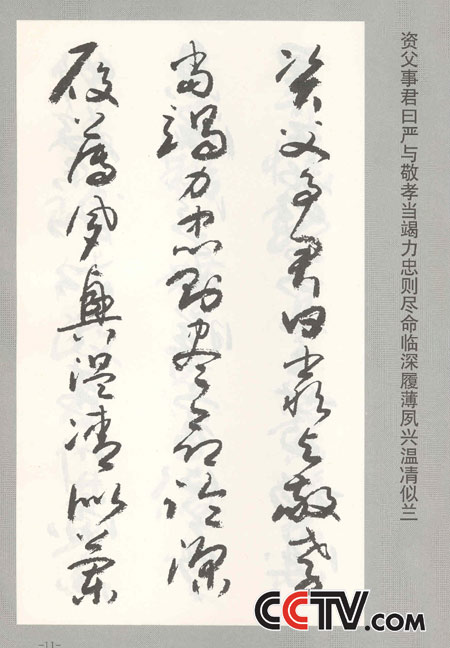 资父事君曰严与敬孝当竭力忠则尽命临深履薄夙兴温凊似兰
資父事君曰嚴与敬孝
當竭力忠則盡命臨深
履薄夙興温凊似蘭
-11-
CCTV.com